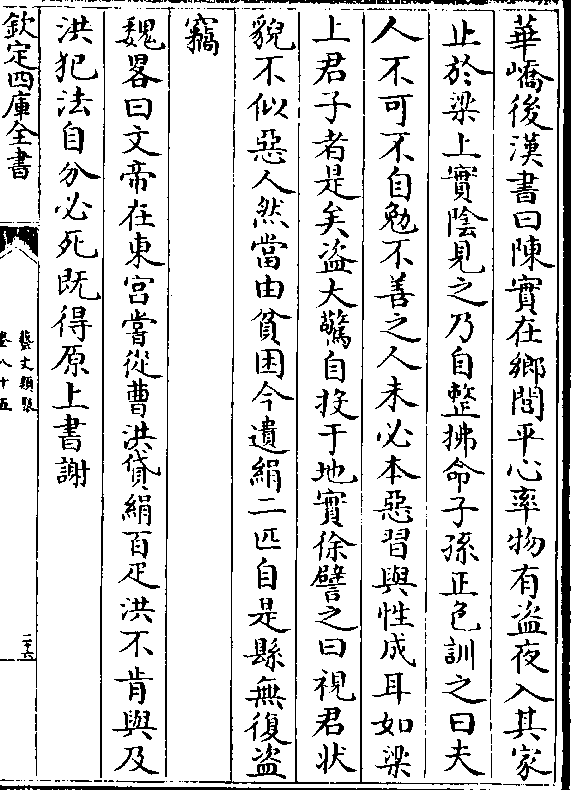 華嶠後漢書曰陳實在鄉閭平心率物有盗夜入其家
止於梁上實陰見之乃自整拂命子孫正色訓之曰夫
人不可不自勉不善之人未必本惡習與性成耳如梁
上君子者是矣盗大驚自投于地實徐譬之曰視君狀
貌不似惡人然當由貧困今遺絹二匹自是縣無復盗
竊
魏畧曰文帝在東宫嘗從曹洪貸絹百疋洪不肯與及
洪犯法自分必死既得原上書謝
欽定四庫全書
藝文類聚
卷八十五
二十六